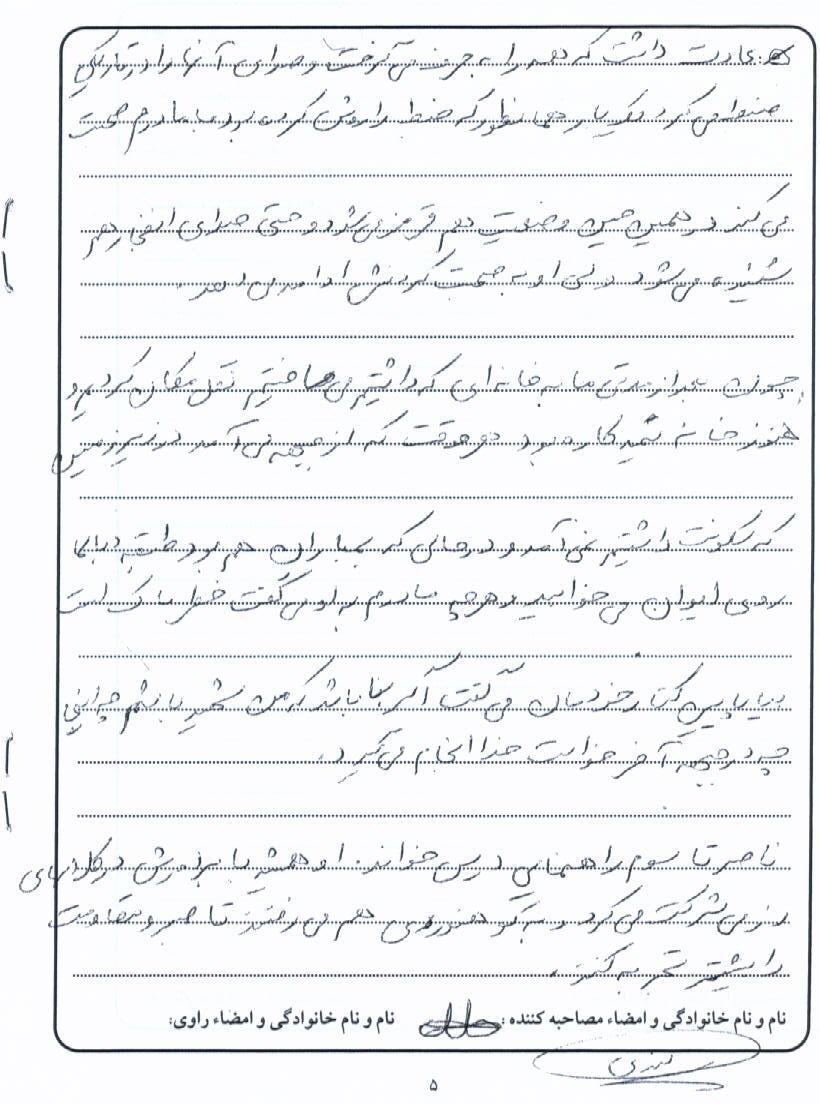 عادت داشت که همه را به حرف می‌گرفت و صدای آنها را در تاریکی
ضبط می‌کرد یک بار همانطور که ضبط را روشن کرده بود با مادرم صحبت
می‌کند در همین حین وضعیت هم قرمز می‌شود و حتی صدای انفجار هم
شنیده می‌شود ولی او به صحبت کردنش ادامه می‌دهد.
چون بعد از مدتی ما به خانه‌ای که داشتیم می‌ساختیم نقل مکان کردیم و
هنوز خانه نیمه کاره بود هر وقت که از جبهه می‌آمد در زیرزمین
که سکونت داشتیم نمی‌آمد و در حالی که بمباران هم بود طبقه بالا
روی ایوان می‌خوابید و هرچه مادرم به او می‌گفت خطرناک است
بیا پایین کنار خودمان می‌گفت اگر بنا باشد که من شهید باشم چه اینجا
چه در جبهه آخر خواست خدا انجام می‌گیرد.
ناصر تا سوم راهنمایی درس خواند. او همیشه با برادرش در کلاسهای
رزمی شرکت می‌کرد و به کوهنوردی هم می‌رفتند تا صبر و مقاومت
را بیشتر تجربه کنند.
نام و نام خانوادگی و امضاء مصاحبه کننده: نام و نام خانوادگی و امضاء راوی:
۵